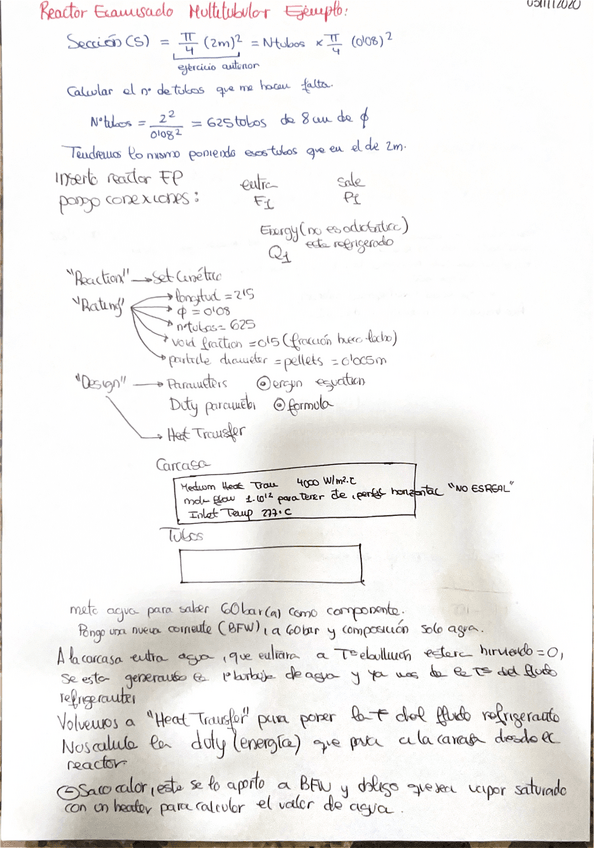 05/11/2020
Reactor Encamisado Multitubular Ejemplo:
Sección (S) = π/4 (2m)² = Ntubos × π/4 (0'08)²
ejercicio anterior
Calcular el nº de tubos que me hacen falta.
Nºtubos = 2²/0'08² = 625 tubos de 8 cm de ϕ
Tendremos lo mismo poniendo esos tubos que en el de 2m.
Inserto reactor FP entra sale
pongo conexiones: F1 P1
Energy (no es adiabático)
Q1 está refrigerado
"Reaction" → Set Cinético
"Rating" → longitud = 2'5
→ ϕ = 0'08
→ nºtubos = 625
→ void fraction = 0'5 (fracción hueco lecho)
→ particle diameter = pellets = 0'005m
"Design" → Parameters ⊙ ergun equation
Duty parameter ⊙ formula
→ Heat Transfer
Carcasa
Medium Heat Tran 4000 W/m².C
mol flow 1.10¹² para tener de perfil horizontal "NO ES REAL"
Inlet Temp 277ºC
Tubos
meto agua para saber 60 bar(a) como componente.
Pongo una nueva corriente (BFW), a 60 bar y composición solo agua.
A la carcasa entra agua, que entrara a Tº ebullición estará hirviendo = 0,
se esta generando agua y ya nos da la Tª del fluido
refrigerante
Volvemos a "Heat Transfer" para poner la Tª del fluido refrigerante
Nos calcula la duty (energía) que pasa a la carcasa desde el
reactor
Saco calor, este se lo aporto a BFW y obligo que sea vapor saturado
con un heater para calcular el valor de agua.